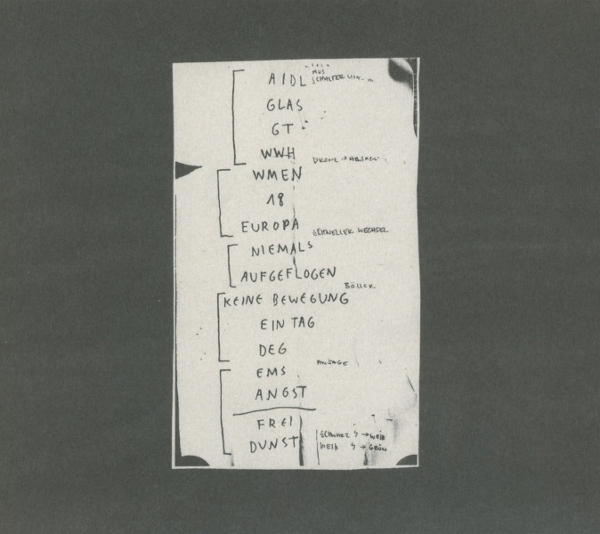 AIDL
GLAS
GT
WWH
WMEN
18
EUROPA SCHNELLER WECHSEL
NIEMALS
AUFGEFLOGEN
BÖLLER
KEINE BEWEGUNG
EIN TAG
DEG
ANSAGE
EMS
ANGST
FREI
DUNST
SCHWARZ → WEIß
WEIß → GRÜN